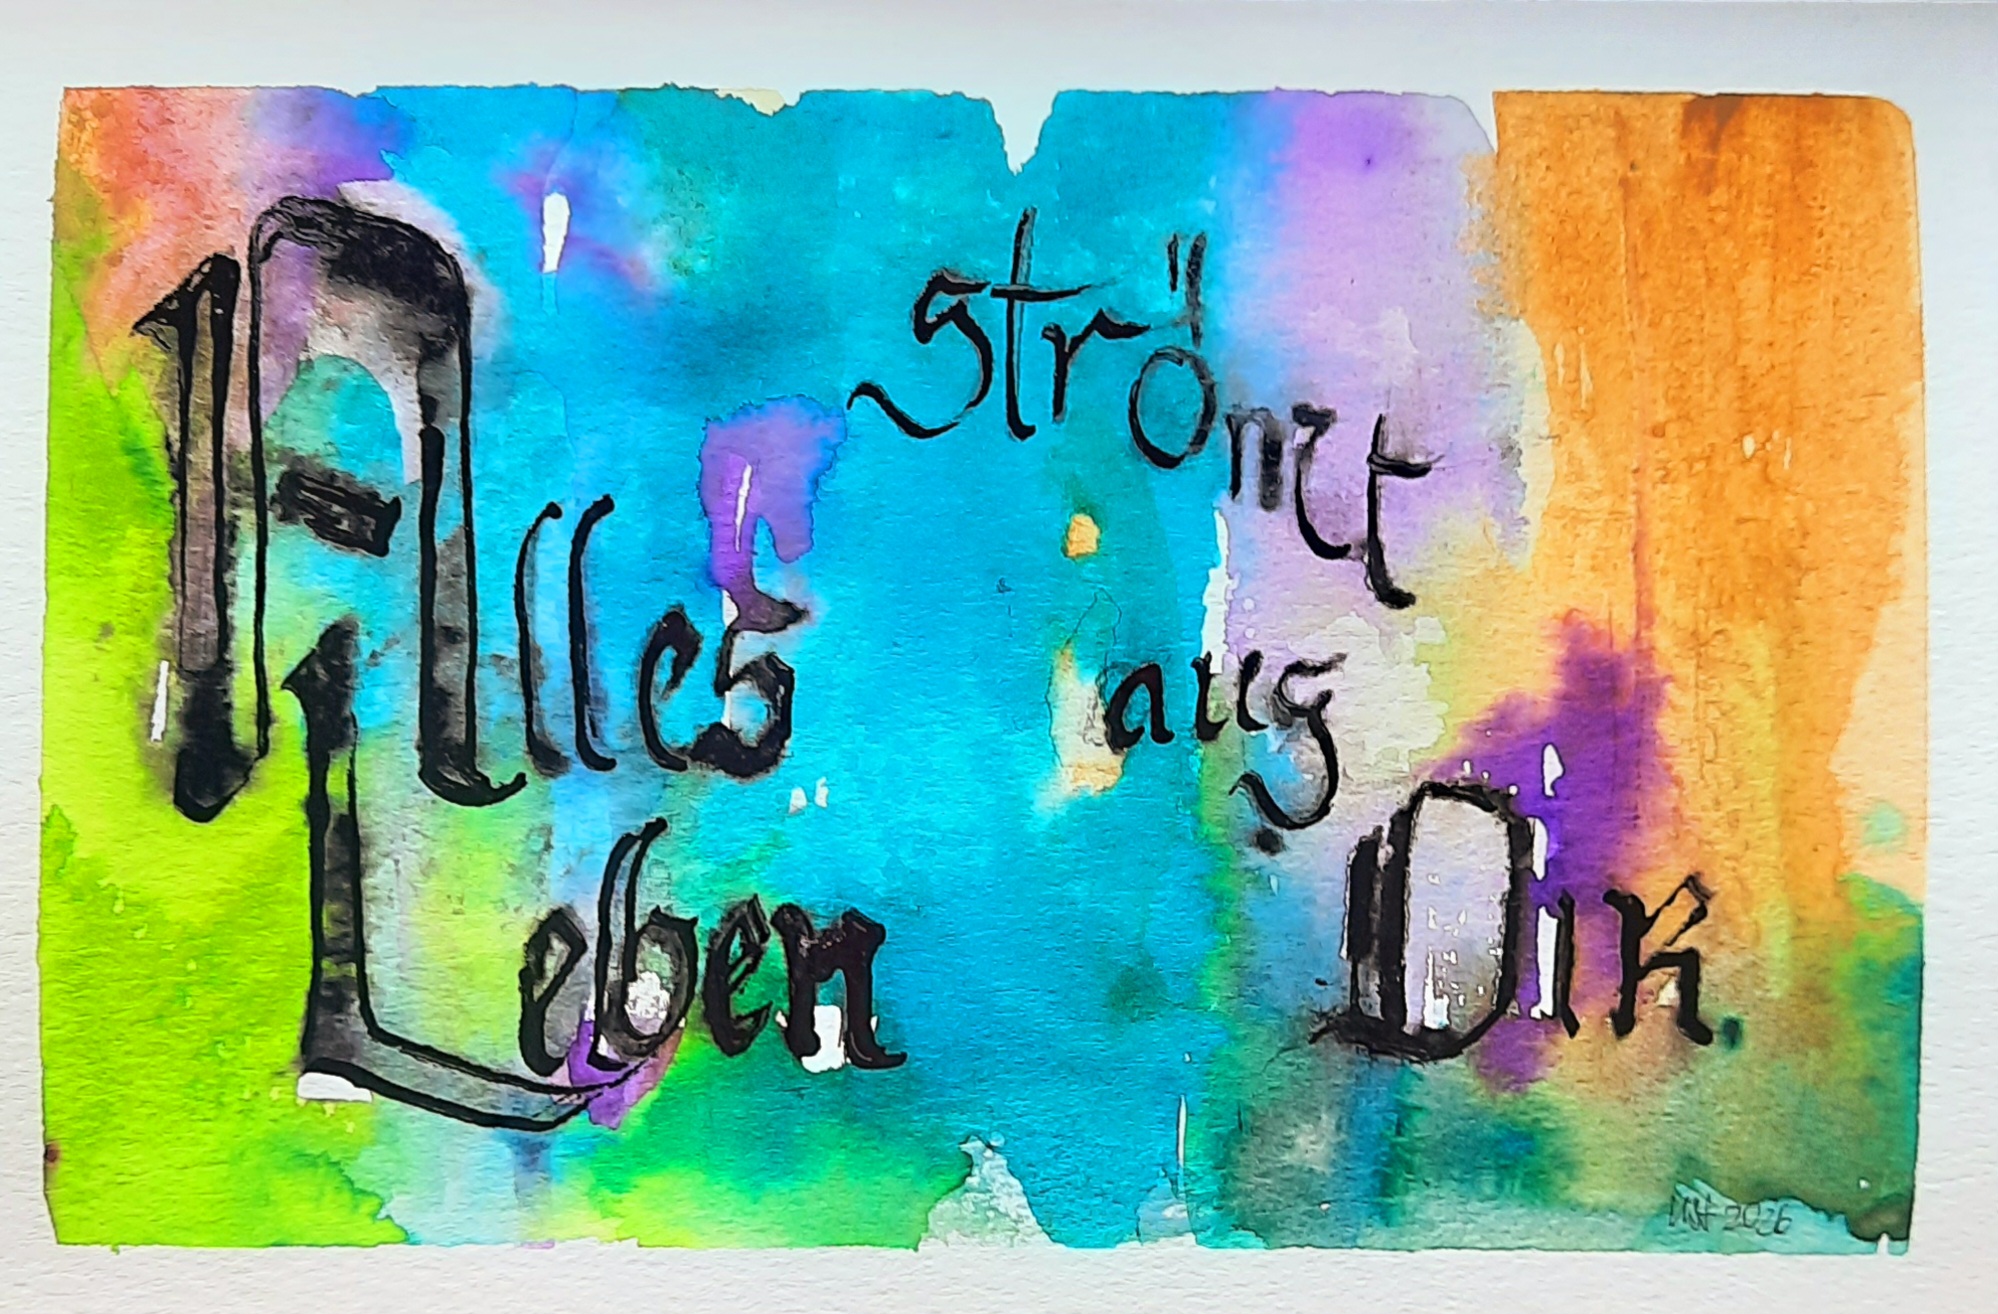 Alles
Leben
strömt
aus
Dir.
2026